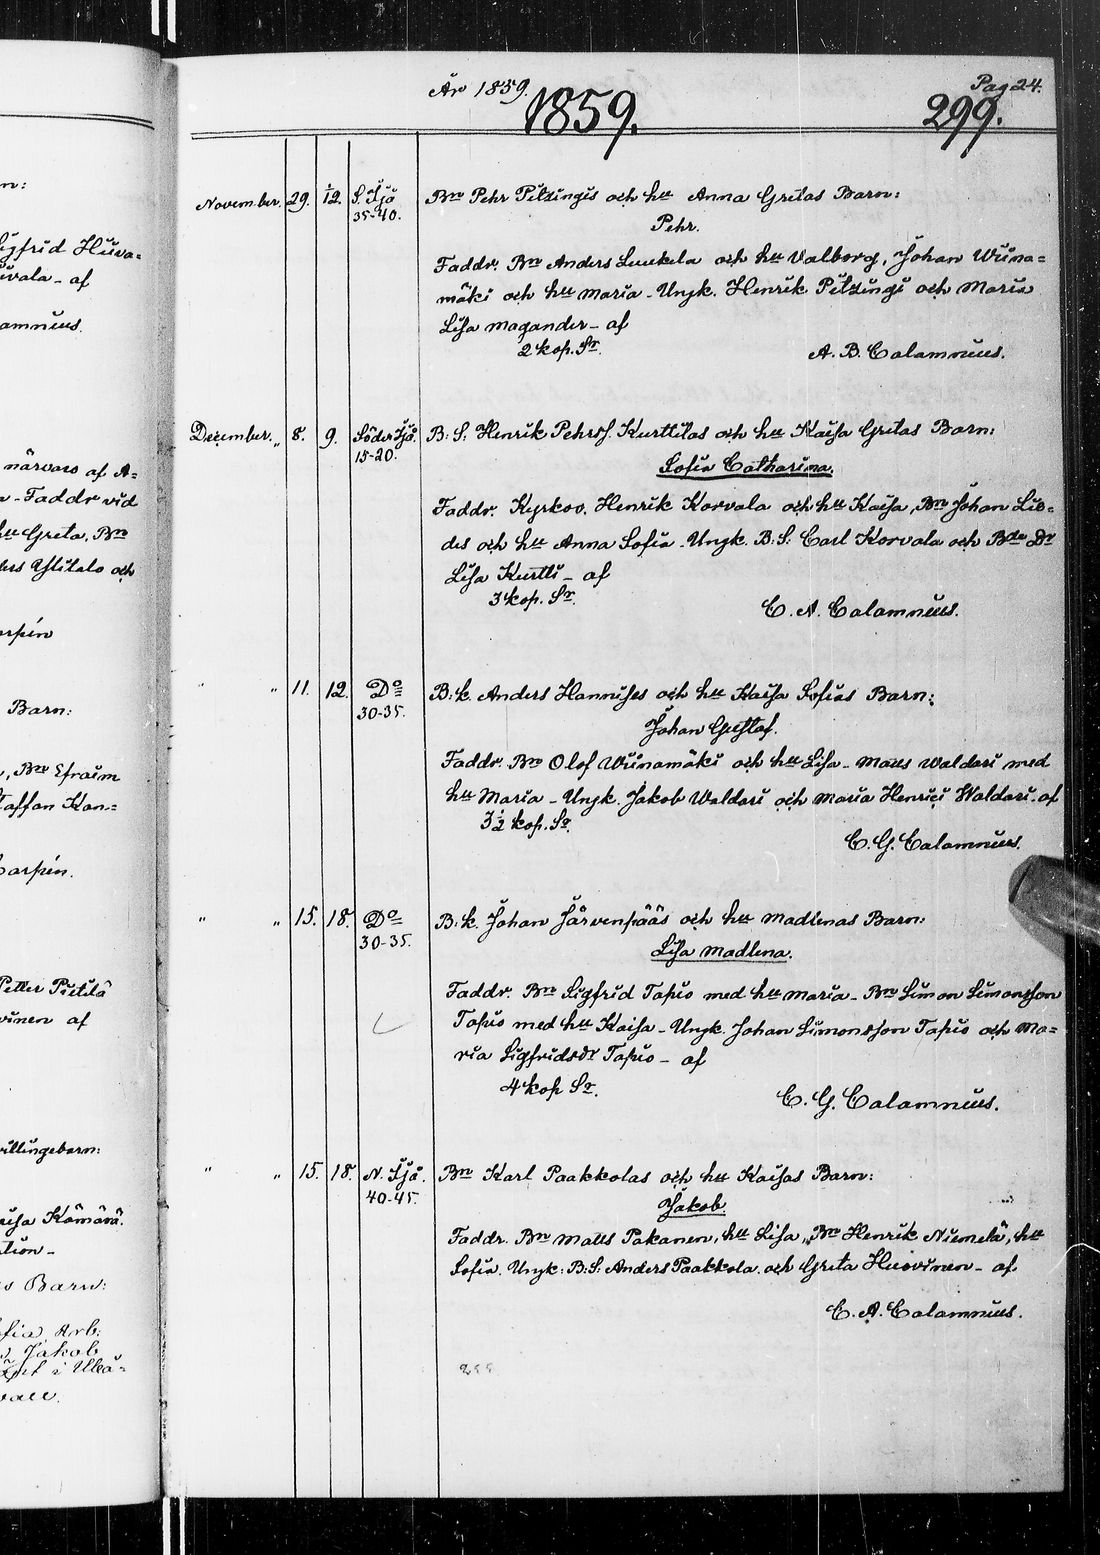 n:
igfrid Hüva=
ivala - af
amnius.
närvaro af A=
n - Faddr vid
htr Greta, Bn
ders Ylitalo och
arpén
Barn:
, Bn Efraim
taffan Kan=
Carpén.
Petter Pietilä
vinen af
villingebarn:
aisa Kämärä.
tion -
s Barn:
ofia, Arb:
, Jakob
i Uleå=
År 1859. Pag 24.
1859. 299.
November. 29. 1/12. S. Ijå Bn Pehr Pitzingis och htr Anna Gretas Barn:
35-40. Pehr.
Faddr. Bn Anders Luukela och htr Valborg, Johan Wiina=
mäki och htr Maria - Ungk. Henrik Pitzingi och Maria
Lisa Magander - af
2 kop. Sr. A. B. Calamnius.
December. „ 8. 9. Söder Ijå. B: S: Henrik Pehrss. Kurttilas och htr Kaisa Gretas Barn:
15-20. Sofia Catharina.
Faddr. Kyrkov. Henrik Korvala och htr Kaisa, Bn Johan Lie=
des och htr Anna Sofia - Ungk. B: S: Carl Korvala och Bde Dr
Lisa Kurtti - af
3 kop. Sr. C. A. Calamnius.
„ „ 11. 12. Do B: k. Anders Hannises och htr Kaisa Sofias Barn:
30-35. Johan Gustaf.
Faddr. Bn Olof Wiinamäki och htr Lisa - Matts Waldari med
htr Maria - Ungk. Jakob Waldari och Maria Henrici Waldari. af
3 1/2 kop. Sr. C. G. Calamnius.
„ „ 15. 18. Do B: k. Johan Järvenpääs och htr Madlenas Barn:
30-35. Lisa Madlena.
Faddr. Bn Sigfrid Tapio med htr Maria - Bn Simon Simonsson
Tapio med htr Kaisa - Ungk. Johan Simonsson Tapio och Ma=
ria Sigfridsdr Tapio - af
4 kop Sr. C. G. Calamnius.
„ „ 15. 18. N. Ijå. Bn Karl Paakkolas och htr Kaisas Barn:
40-45. Jakob.
Faddr. Bn Matts Pakanen, htr Lisa, Bn Henrik Niemelä, htr
Sofia. Ungk: B: S: Anders Paakkola. och Greta Huovinen - af
C. A. Calamnius.
299